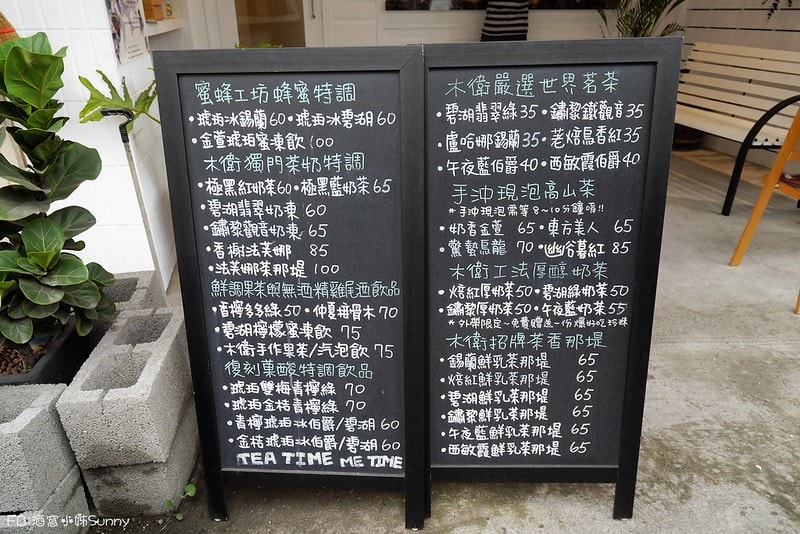 蜜蜂工坊蜂蜜特調
•琥珀冰錫蘭60 •琥珀冰碧湖60
•金萱琥珀蜜凍飲 100
木衛獨門茶奶特調
•極黑紅奶茶60 •極黑藍奶茶 65
•碧湖翡翠奶凍 60
•鏽黎觀音奶凍 65
•香榭法芙娜 85
•法芙娜茶那堤 100
鮮調果茶與無酒精雞尾酒飲品
•青檸多多綠 50 •仲夏接骨木 70
•碧湖檸檬蜜凍飲 75
•木衛手作果茶/汽泡飲 75
復刻菓酸特調飲品
•琥珀雙梅青檸綠 70
•琥珀金桔青檸綠 70
•青檸琥珀冰伯爵/碧湖 60
•金桔琥珀冰伯爵/碧湖 60
TEA TIME ME TIME
木衛嚴選世界茗茶
•碧湖翡翠綠 35 •鏽黎鐵觀音 35
•盧哈娜錫蘭 35 •老焙烏香紅 35
•午夜藍伯爵 40 •西敏霞伯爵 40
手沖現泡高山茶
*手沖現泡需等8~10分鐘唷!!
•奶香金萱 65 •東方美人 65
•驚蟄烏龍 70 •幽谷暮紅 85
木衛工法厚醇奶茶
•焙紅厚奶茶50 •碧湖綠奶茶50
•鏽黎厚奶茶50 •午夜藍奶茶55
*外帶限定~免費贈送一份爆好吃珍珠
木衛招牌茶香那堤
•錫蘭鮮乳茶那堤 65
•焙紅鮮乳茶那堤 65
•碧湖鮮乳茶那堤 65
•鏽黎鮮乳茶那堤 65
•午夜藍鮮乳茶那堤 65
•西敏霞鮮乳茶那堤 65
FB:酒窩小姊Sunny